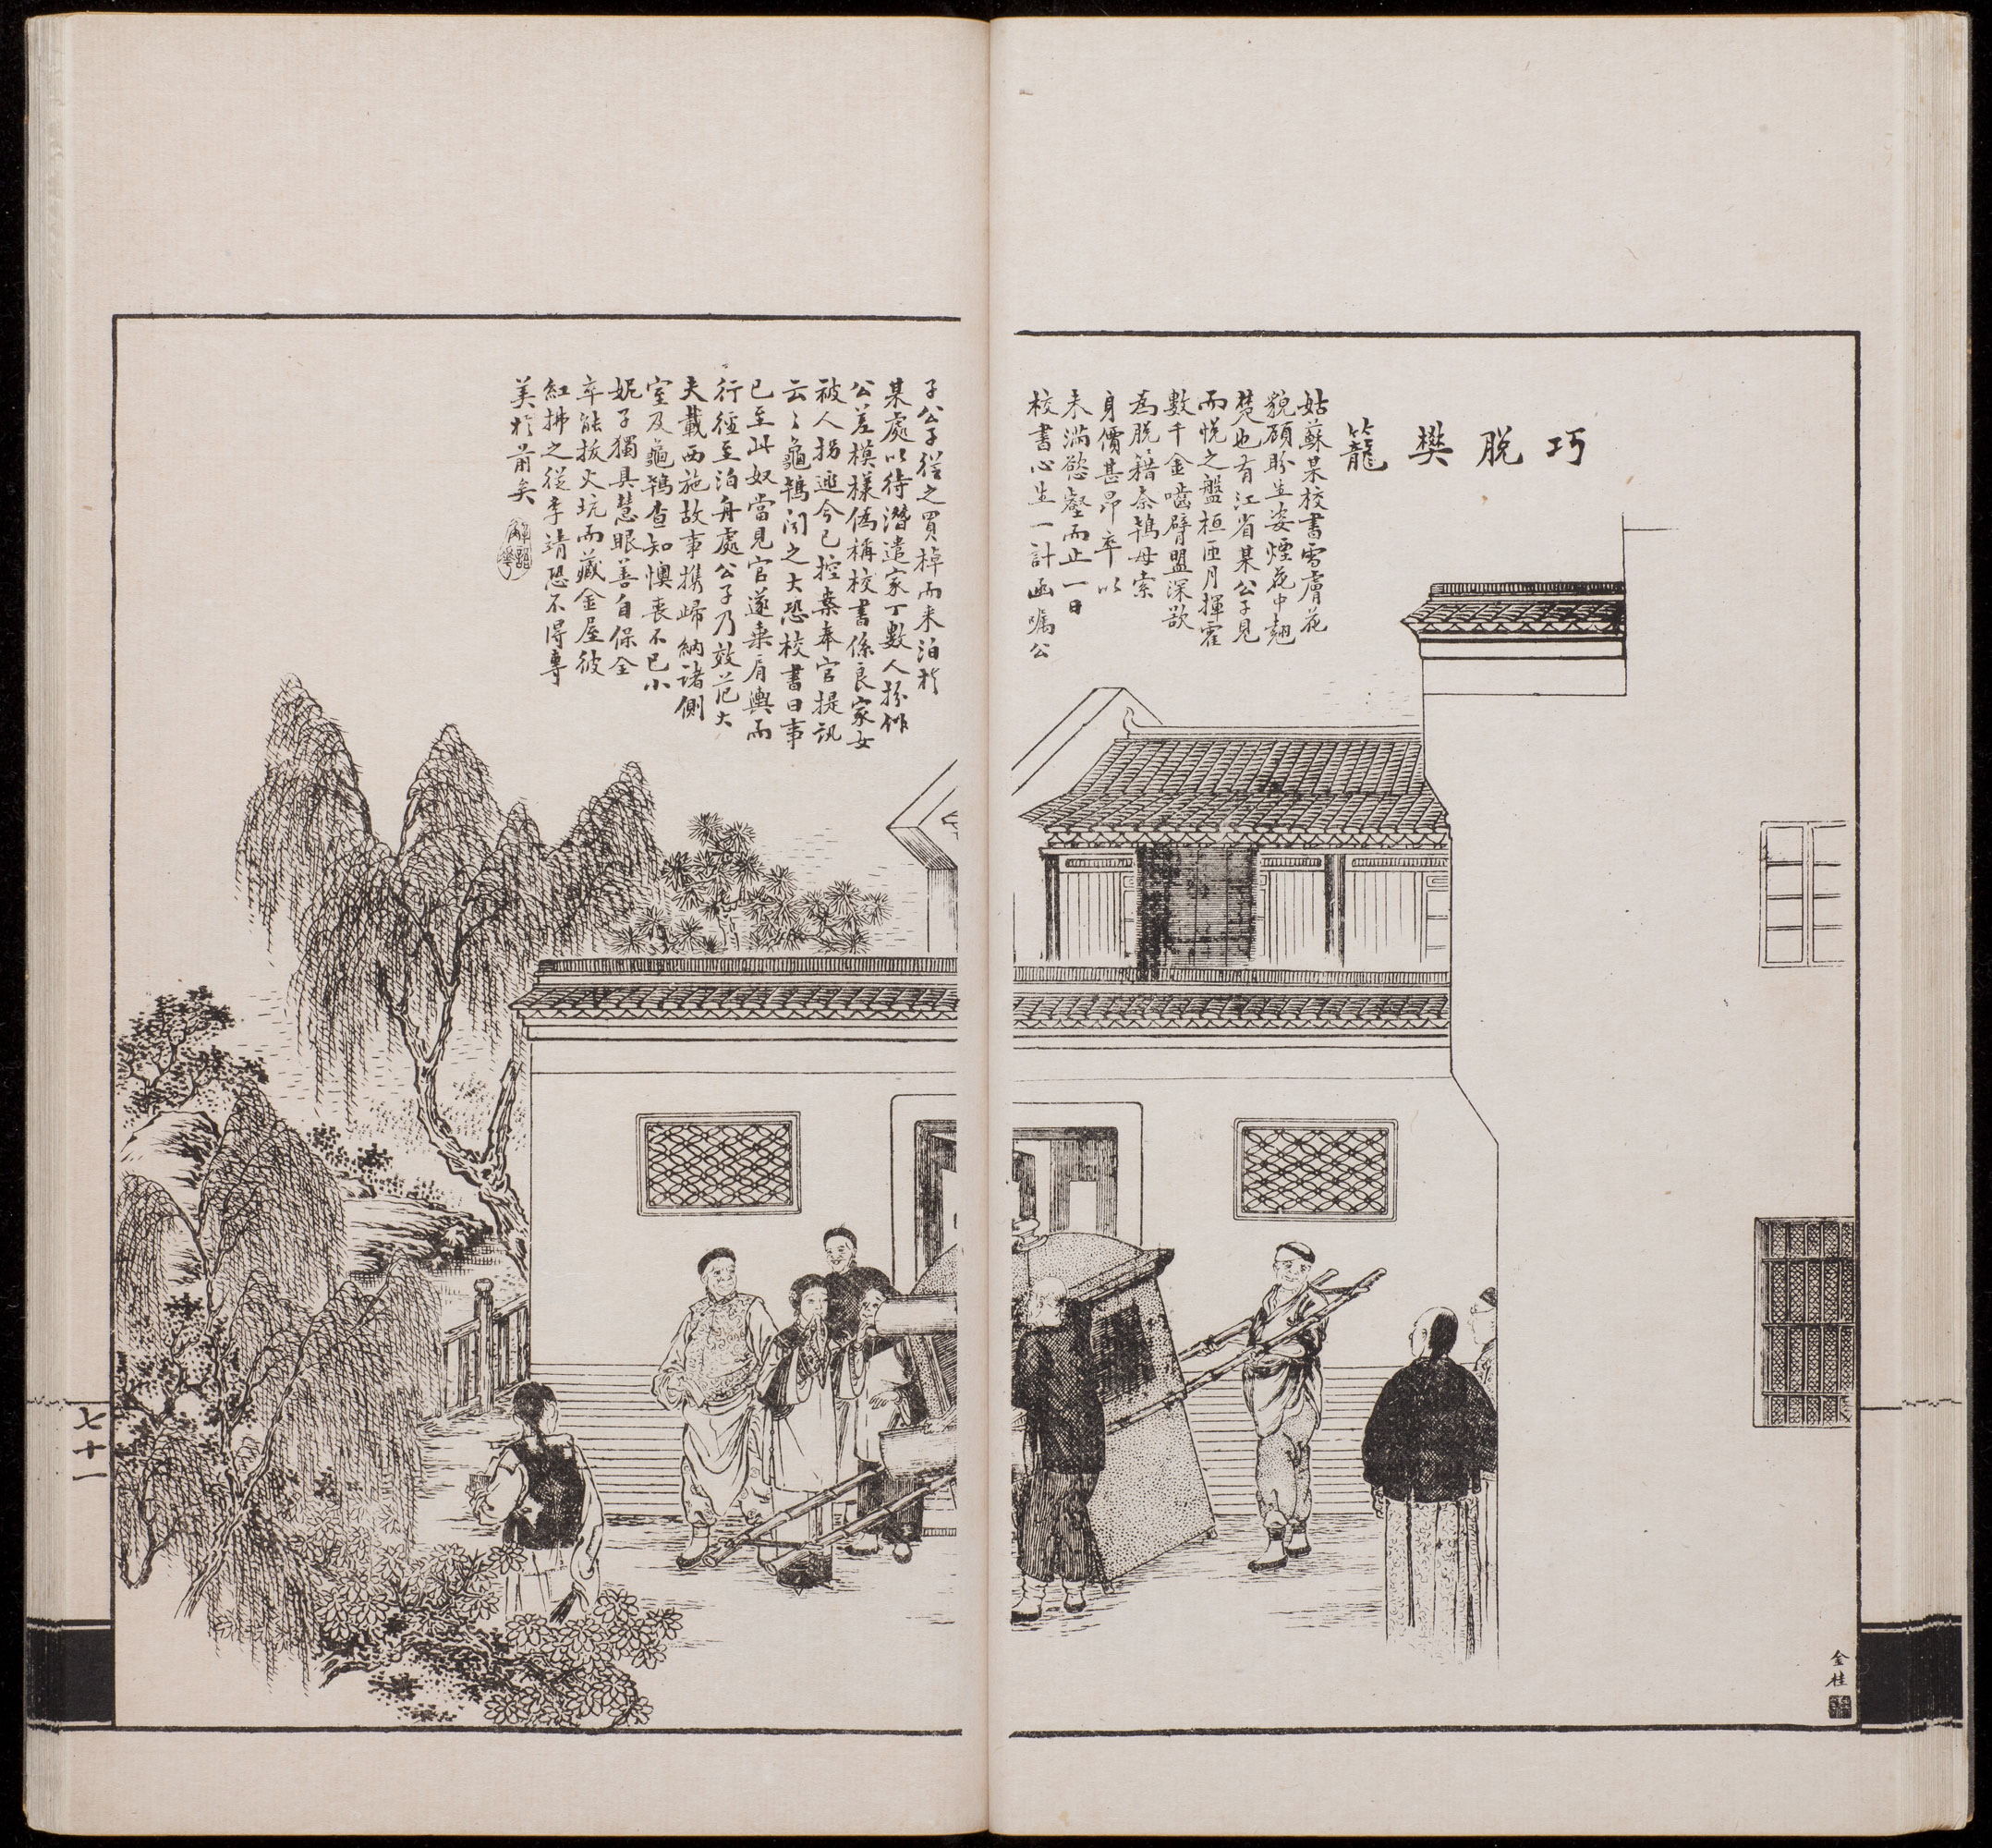 巧脫樊籠
姑蘇某校書雪膚花
貌顧盼生姿煙花中翹
楚也有江省某公子見
而悅之盤桓匝月揮霍
數千金嚙臂盟深欲
為脫籍奈鴇母索
身價甚昂卒以
未滿慾壑而止一日
校書心生一計函囑公
子公子從之買棹而來泊於
某處以待潛遣家丁數人扮作
公差模樣偽稱校書係良家女
被人拐逃今已控案奉官提訊
云〻龜鴇聞之大恐校書曰事
已至此奴當見官遂乘肩輿而
行徑至泊舟處公子乃效范大
夫載西施故事攜歸納諸側
室及龜鴇查知懊喪不已小
妮子獨具慧眼善自保全
卒能拔火坑而藏金屋彼
紅拂之從李靖恐不得專
美於前矣
解語花
金桂
七十一